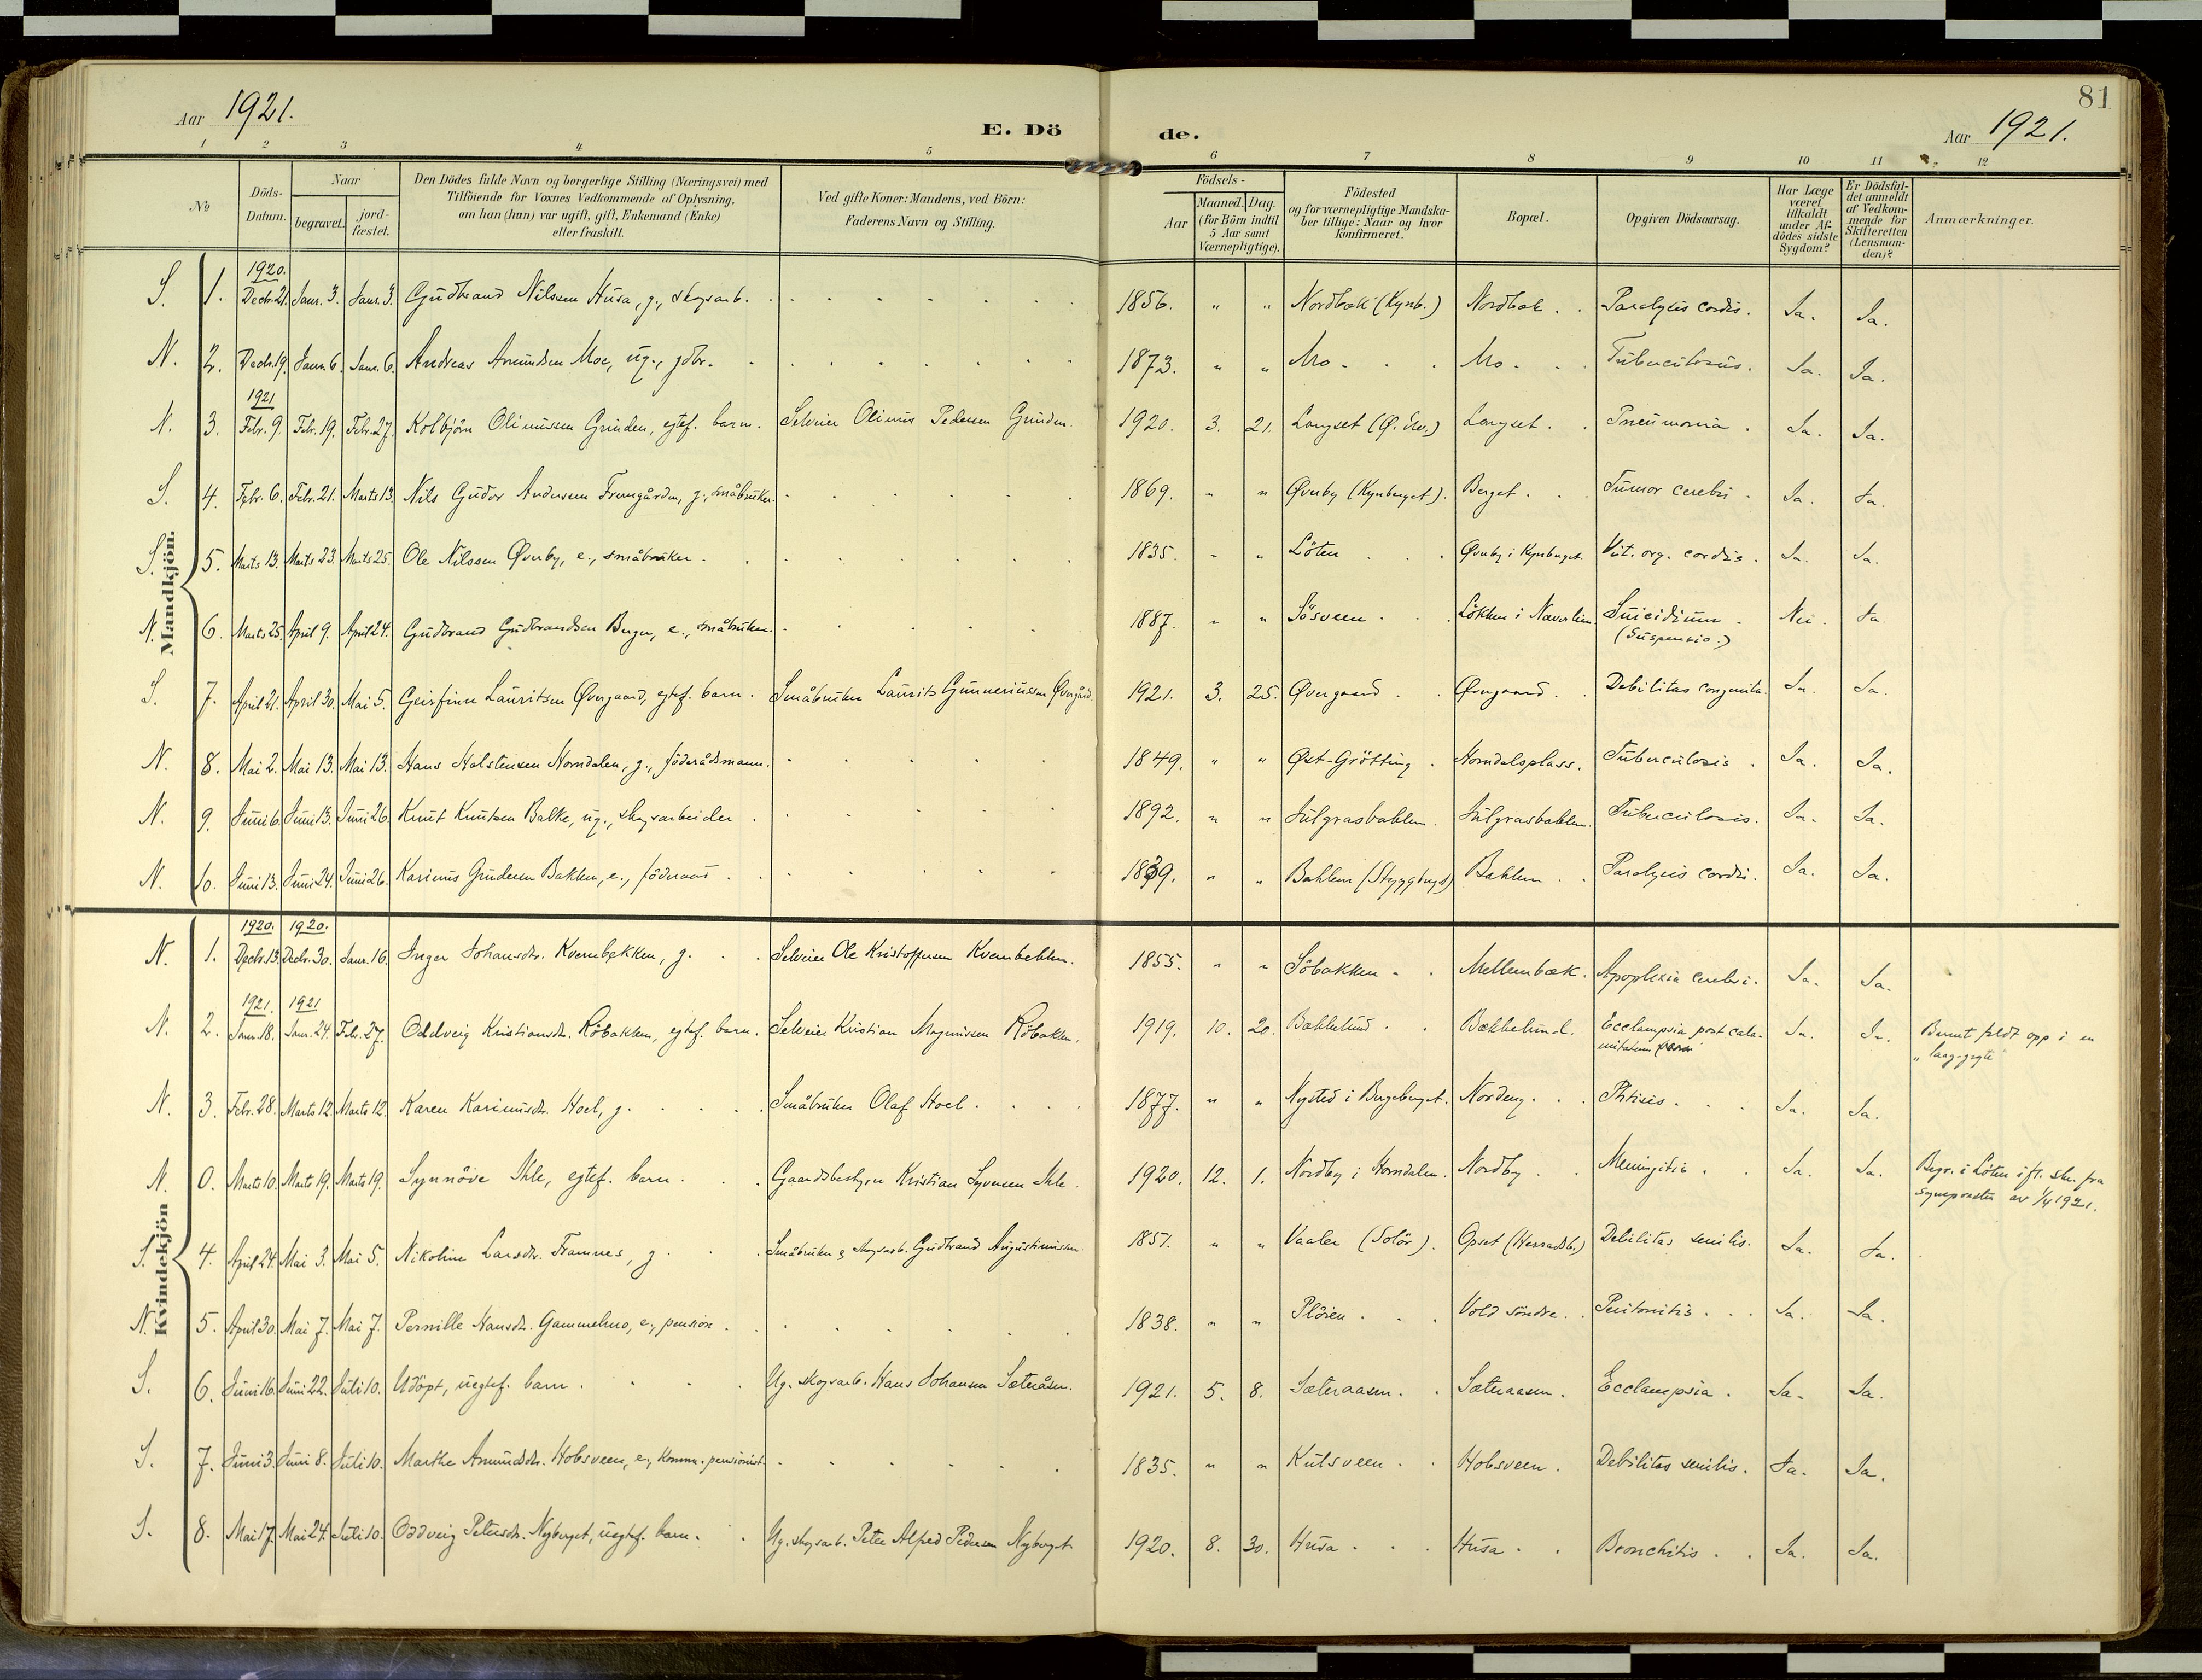 81
Aar 1921.
E. Döde.
Aar 1921.
1 2 3 4 5 6 7 8 9 10 11 12
No
Döds-Datum.
Naar
begravet.
jord-fæstet.
Den Dödes fulde Navn og borgerlige Stilling (Næringsvei) med
Tilföiende for Voxnes Vedkommende af Oplysning,
om han (hun) var ugift, gift, Enkemand (Enke)
eller fraskilt.
Ved gifte Koner: Mandens, ved Börn:
Faderens Navn og Stilling.
Födsels-
Aar
Maaned. Dag.
(for Börn indtil
5 Aar samt
Værnepligtige).
Födested
og for værnepligtige Mandska-
ber tillige: Naar og hvor
konfirmeret.
Bopæl.
Opgiven Dödsaarsag.
Har Læge
været
tilkaldt
under Af-
dödes sidste
Sygdom?
Er Dödsfal-
det anmeldt
af Vedkom-
mende for
Skifteretten
(Lensman-
den)?
Anmærkninger.
Mandkjön.
1920.
S. 1. Decbr. 21. Janr. 3. Janr. 3. Gudbrand Nilssen Husa, g., skogsarb. 1856. " " Nordbæk (Kynb.) Nordbæk. Paralysis cordis. Ja. Ja.
N. 2. Decbr. 19. Janr. 6. Janr. 6. Andreas Amundsen Moe, ug., jdbr. 1873. " " Mo. Mo. Tuberculosis. Ja. Ja.
1921
N. 3. Febr. 9. Febr. 19. Febr. 27. Kolbjörn Olimussen Grinden, egtef. barn. Selveier Olimus Pedersen Grinden. 1920. 3. 21. Langset Langset. Pneumonia. Ja. Ja.
S. 4. Febr. 6. Febr. 21. Marts 13. Nils Gudor Andersen Framgården, g., småbruker. 1869. " " Øverby (Kynberget). Berget. Tumor cerebri. Ja. Ja.
S. 5. Marts 13. Marts 23. Marts 25. Ole Nilssen Øverby, e., småbruker. 1835. " " Löten Øverby i Kynberget. Vit. org. cordis. Ja. Ja.
N. 6. Marts 25. April 9. April 24. Gudbrand Gudbrandsen Berger, e., småbruker. 1887. " " Sösveen. Lökken i Næverlien. Suicidium. Nei. Ja.
(Suspensio.)
S. 7. April 21. April 30. Mai 5. Geirfinn Lauritsen Øvergaard, egtef. barn. Småbruker Laurits Gunneriussen Øvergård. 1921. 3. 25. Øvergaard. Øvergaard. Debilitas congenita. Ja. Ja.
N. 8. Mai 2. Mai 13. Mai 13. Hans Halstensen Horndalen, g., föderådsmann. 1849. " " Øst-Grötting. Horndalsplass. Tuberculosis. Ja. Ja.
N. 9. Juni 6. Juni 13. Juni 26. Knut Knutsen Balke, ug., skogsarbeider. 1892. " " Julgrasbakken. Julgrasbakken. Tuberculosis. Ja. Ja.
N. 10. Juni 13. Juni 24. Juni 26. Karinus Gudersen Bakken, e., föderaad. 1839. " " Bakken (Styggberget) Bakken. Paralysis cordis. Ja. Ja.
Kvindekjön
1920. 1920.
N. 1. Decbr. 13. Decbr. 30. Janr. 16. Inger Johansdtr. Kvernbekken, g. Selveier Ole Kristoffersen Kvernbekken. 1855. " " Söbakken. Mellembæk. Apoplexia cerebri. Ja. Ja.
1921. 1921
N. 2. Janr. 18. Janr. 24. Febr. 27. Oddveig Kristiansdtr. Röbakken, egtef. barn. Selveier Kristian Magnussen Röbakken. 1919. 10. 20. Bækkelund. Bækkelund. Ecclampsia post cala- Ja. Ja. Barnet faldt opp i en
"
N. 3. Febr. 28. Marts 12. Marts 12. Karen Karinusdtr. Hoel, g. Småbruker Olaf Hoel. 1877. " " Nysted i Bergeberget. Nordeng. Phtisis. Ja. Ja.
N. 0. Marts 10. Marts 19. Marts 19. Synnöve Ihle, egtef. barn. Gaardsbestyrer Kristian Syversen Ihle. 1920. 12. 1. Nordby i Horndalen. Nordby. Meningitis. Ja. Ja. Begr. i Löten ifl. skr. fra
sogneprest av 1/4 1921.
S. 4. April 24. Mai 3. Mai 5. Nikoline Larsdtr. Framnes, g. Småbruker & skogsarb. Gudbrand Augustinussen. 1851. " " Vaaler (Solör). Opset (Herradsb.) Debilitas senilis. Ja. Ja.
N. 5. April 30. Mai 7. Mai 7. Pernille Hansdtr. Gammelmo, e., pension. 1838. " " Plöien. Vold söndre. Peritonitis. Ja. Ja.
S. 6. Juni 16. Juni 22. Juli 10. Udöpt, uegtef. barn. Ug. skogsarb. Hans Johansen Sæteråsen. 1921. 5. 8. Sæteraasen. Sæteraasen. Ecclampsia. Ja. Ja.
S. 7. Juni 3. Juni 8. Juli 10. Marthe Amundsdtr. Hobsveen, e., komm. pensionist. 1835. " " Kulsveen. Hobsveen. Debilitas senilis. Ja. Ja.
S. 8. Mai 17. Mai 24. Juli 10. Oddveig Petersdtr. Nyberget, uegtef. barn. Ug. skogsarb. Peter Alfred Pedersen Nyberget. 1920. 8. 30. Husa. Husa. Bronchitis. Ja. Ja.